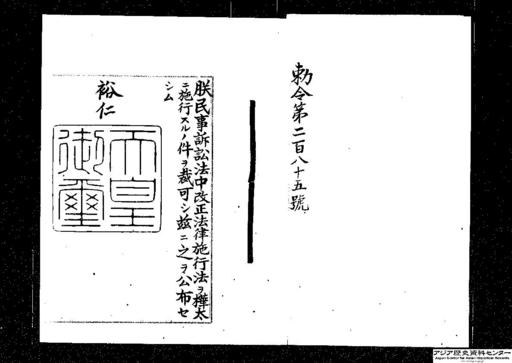 勅令第二百八十五號
朕民事訴訟法中改正法律施行法ヲ樺太
ニ施行スルノ件ヲ裁可シ茲ニ之ヲ公布セ
シム
裕仁
天皇
御璽
アジア歴史資料センター
Japan Center for Asian Historical Records